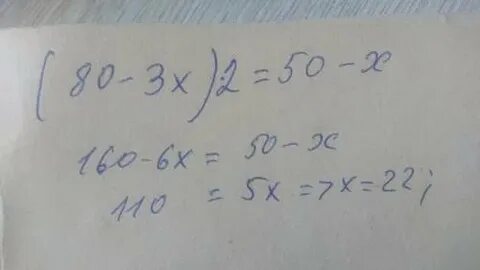 (80-3x)2=50-x
160-6x=50-x
110 = 5x => x=22;